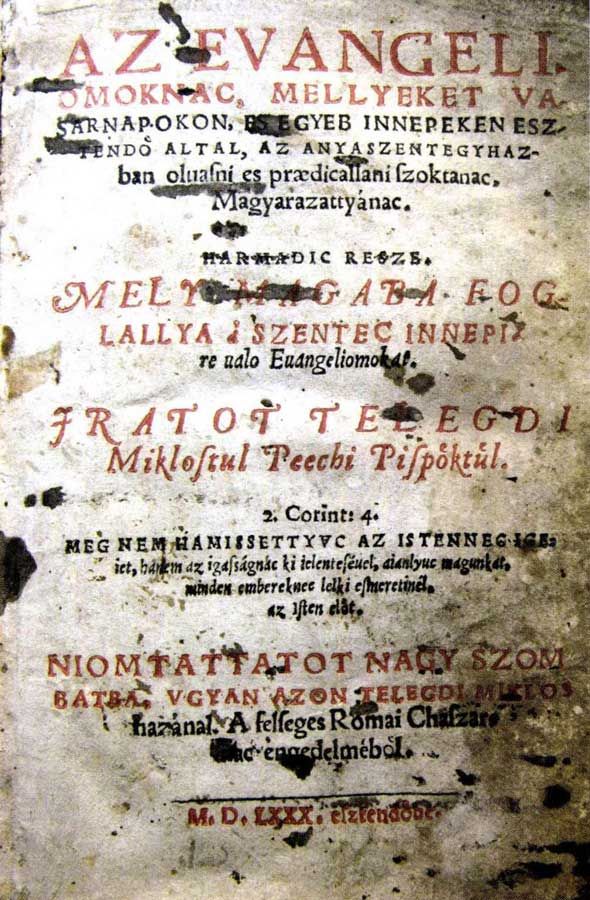 AZ EVANGELI
OMOKNAC, MELLYEKET VA-
SARNAPOKON, ES EGYEB INNEPEKEN ESZ-
TENDŐ ALTAL, AZ ANYASZENTEGYHAZ-
ban oluaſni es prædicallani ſzoktanac,
Magyarazattyánac.
HARMADIC RESZE.
MELY MAGABA FOG-
LALLYA á SZENTEC INNEPI-
re ualo Euangeliomokat.
IRATOT TELEGDI
Mikloſtul Peechi Piſpőktűl.
2. Corint: 4.
MEG NEM HAMISSETTYVC AZ ISTENNEC IGE-
iet, hanem az igaſságnac ki ielenteſéuel, aianlyuc magunkat,
minden embereknec lelki eſmeretinél,
az Iſten előt.
NIOMTATTATOT NAGY SZOM
BATBA, VGYAN AZON TELEGDI MIKLOS
hazánal. A felſeges Romai Chaſzár-
nac engedelméből.
M. D. LXXX. eſztendőbe.